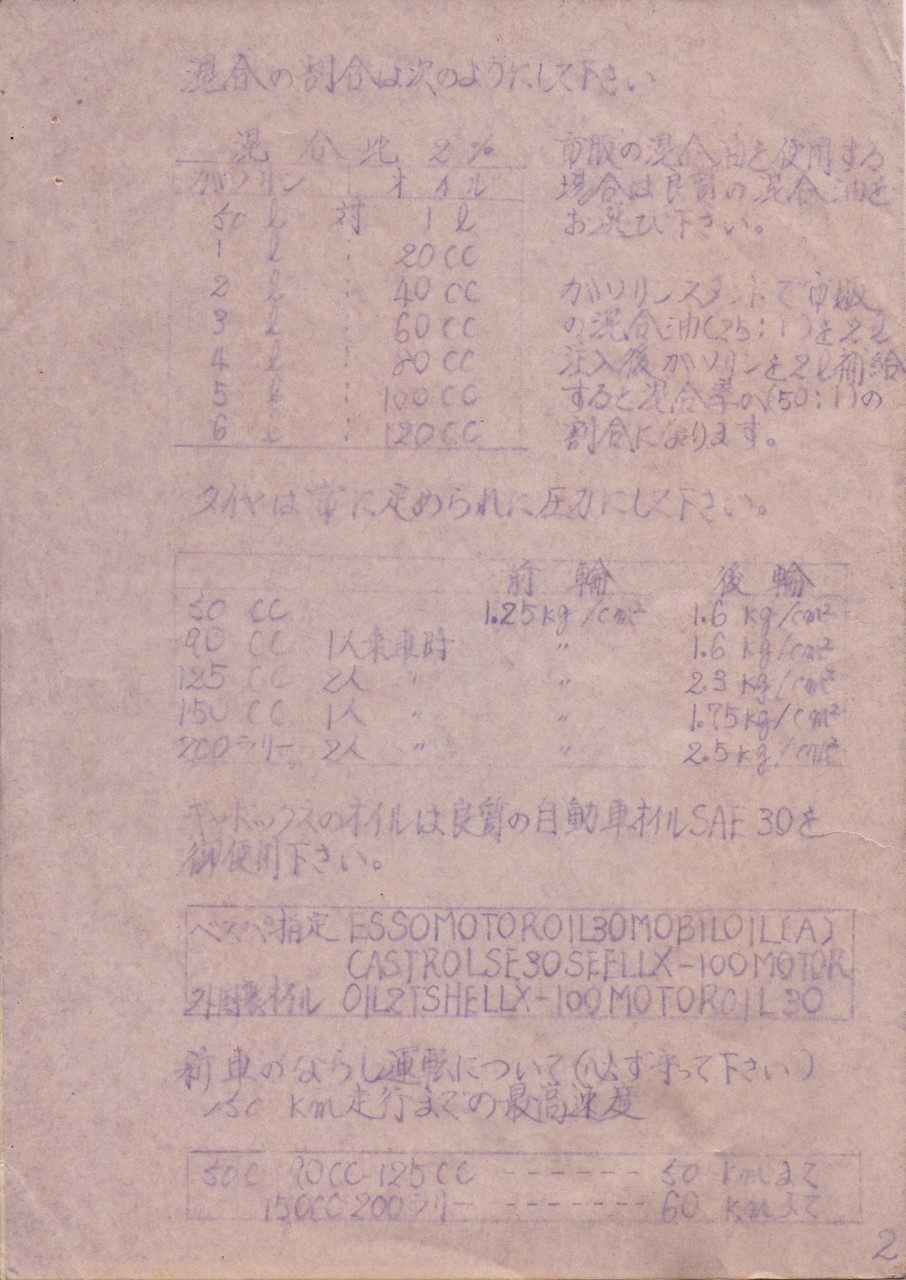 混合の割合は次のようにして下さい
混合比 2%
ガソリン オイル
50 l 対 1 l
1 l : 20CC
2 l : 40CC
3 l : 60CC
4 l : 80CC
5 l : 100CC
6 l : 120CC
市販の混合油を使用する
場合は良質の混合油を
お選び下さい。
ガソリンスタンドで市販
の混合油(25:1)を2l
注入後ガソリンを2l補給
すると混合率が(50:1)の
割合になります。
タイヤは常に定められた圧力にして下さい。
前輪 後輪
50 CC 1.25kg/cm² 1.6 kg/cm²
90 CC 1人乗車時 〃 1.6 kg/cm²
125 CC 2人 〃 〃 2.3 kg/cm²
150 CC 1人 〃 〃 1.75kg/cm²
200ラリー 2人 〃 〃 2.5kg/cm²
ギヤボックスのオイルは良質の自動車オイルSAE 30を
御使用下さい。
ベスパ指定 ESSOMOTOROIL30MOBILOIL(A)
CASTROLSE30SEFLLX-100MOTOR
オイル OIL2TSHELLX-100MOTOROIL30
新車のならし運転について(必ず守って下さい)
km走行までの最高速度
50C 90CC 125CC ------ 50 kmまで
150CC200ラリー ------- 60 kmまで
2